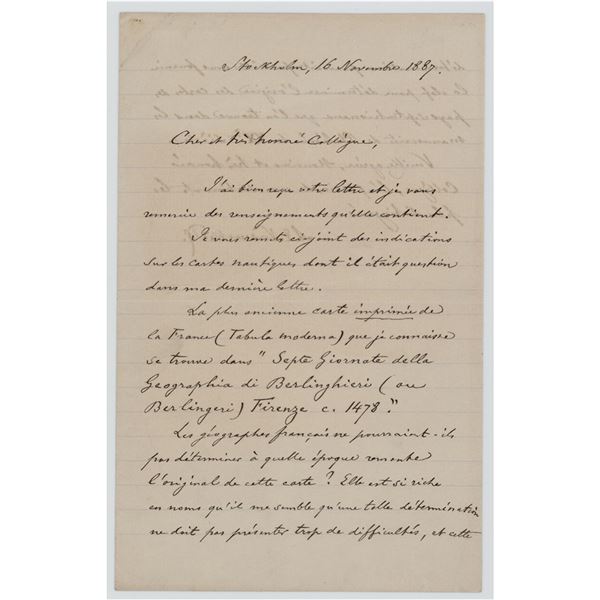 Stockholm, 16 Novembre 1887.
Cher et très honoré Collègue,
J'ai bien reçu votre lettre et je vous
remercie des renseignements qu'elle contient.
Je vous remets ci-joint des indications
sur les cartes nautiques dont il était question
dans ma dernière lettre.
La plus ancienne carte imprimée de
la France (Tabula moderna) que je connaisse
se trouve dans "Septe Giornate della
Geographia di Berlinghieri (ou
Berlingeri) Firenze c. 1478."
Les géographes français ne pourraient-ils
pas déterminer à quelle époque remonte
l'original de cette carte? Elle est si riche
en noms qu'il me semble qu'une telle détermination
ne doit pas présenter trop de difficultés, et cette